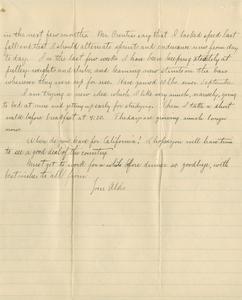 in the next few months. Mr. Prentice say that I lacked speed last
fall and that I should alternate sprints and endurance runs from day
to day. In the last few weeks I have been keeping steadily at
pulley weights and clubs, and learning new stunts on the bars
whenever they were up for use. Have gained 10 lbs. since September.
I am trying a new idea which I like very much, namely, going
to bed at nine and getting up early for studying. Then I take a short
walk before breakfast at 7:20. The days are growing much longer
now.
When do you leave for California? I hope you will have time
to see a good deal of the country.
Must get to work for a while before dinner so goodbye, with
best wishes to all from